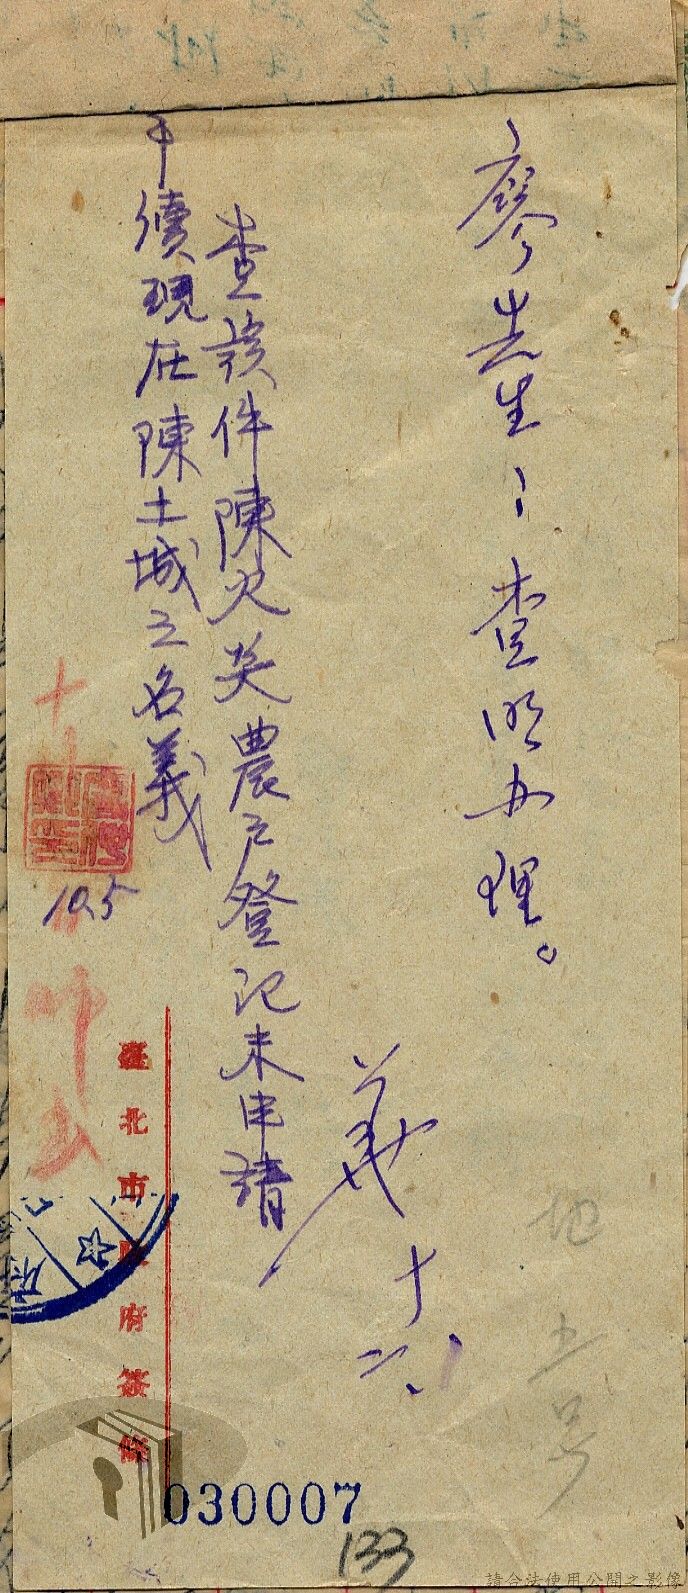 廖先生：查明办理。
十二、
查該件陳火炎農戶登記未申請
手續現在陳土城之名義
10.5
臺北市政府簽條
030007
133
請合法使用公開之影像